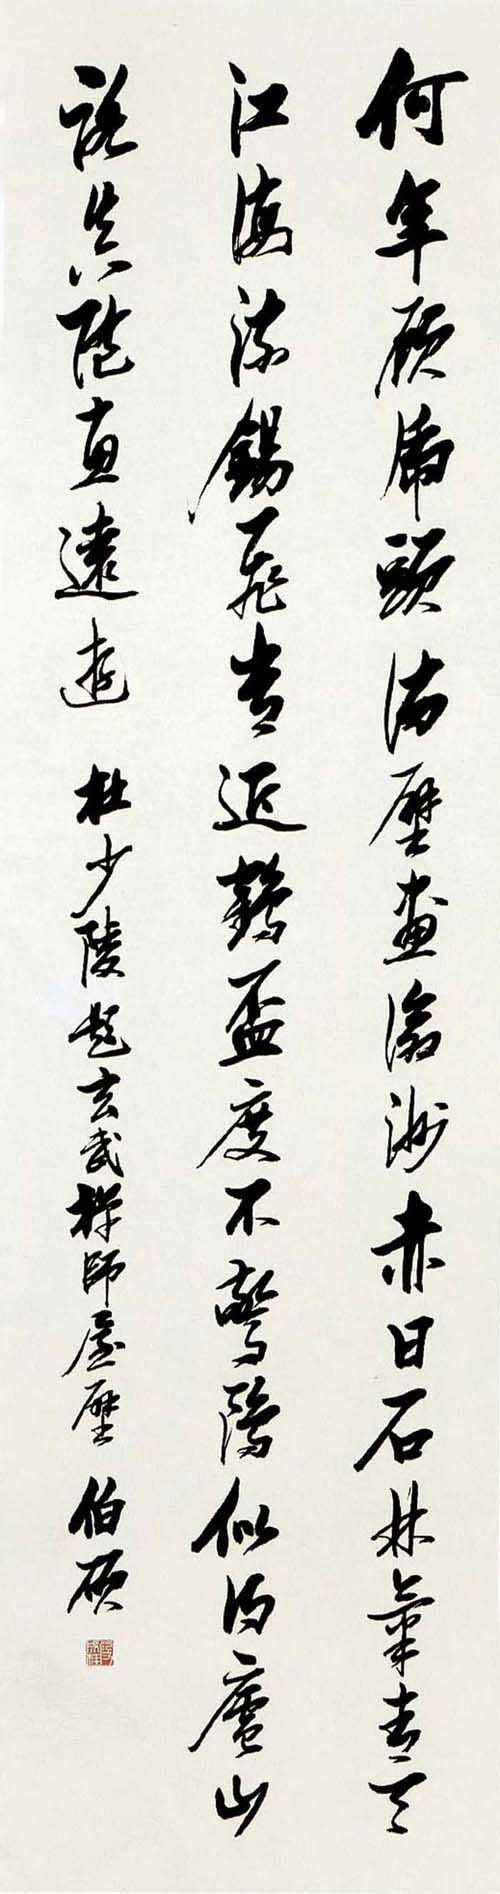 何年顧虎頭滿壁畫滄洲赤日石林氣青天
江海流錫飛常近鶴盃度不驚鷗似得廬山
路真隨惠遠遊 杜少陵題玄武禪師屋壁 伯碩